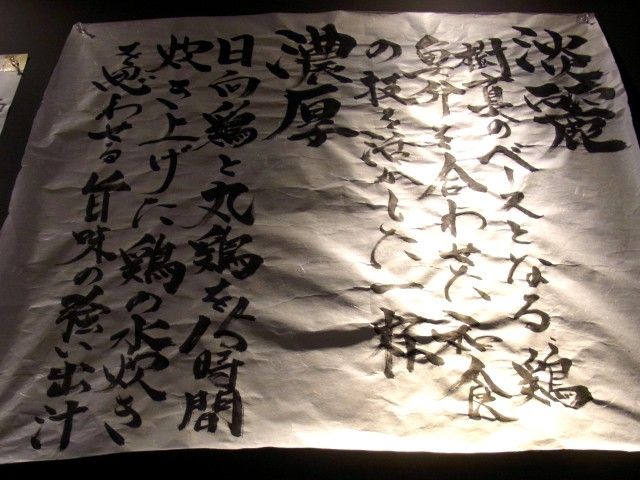 淡麗
樹真のベースとなる、鶏
魚介を合わせた、和食
の技を活かした一杯
濃厚
日向鶏と丸鶏を18時間
炊き上げに鶏の水炊き
を思わせる旨味の強い出汁